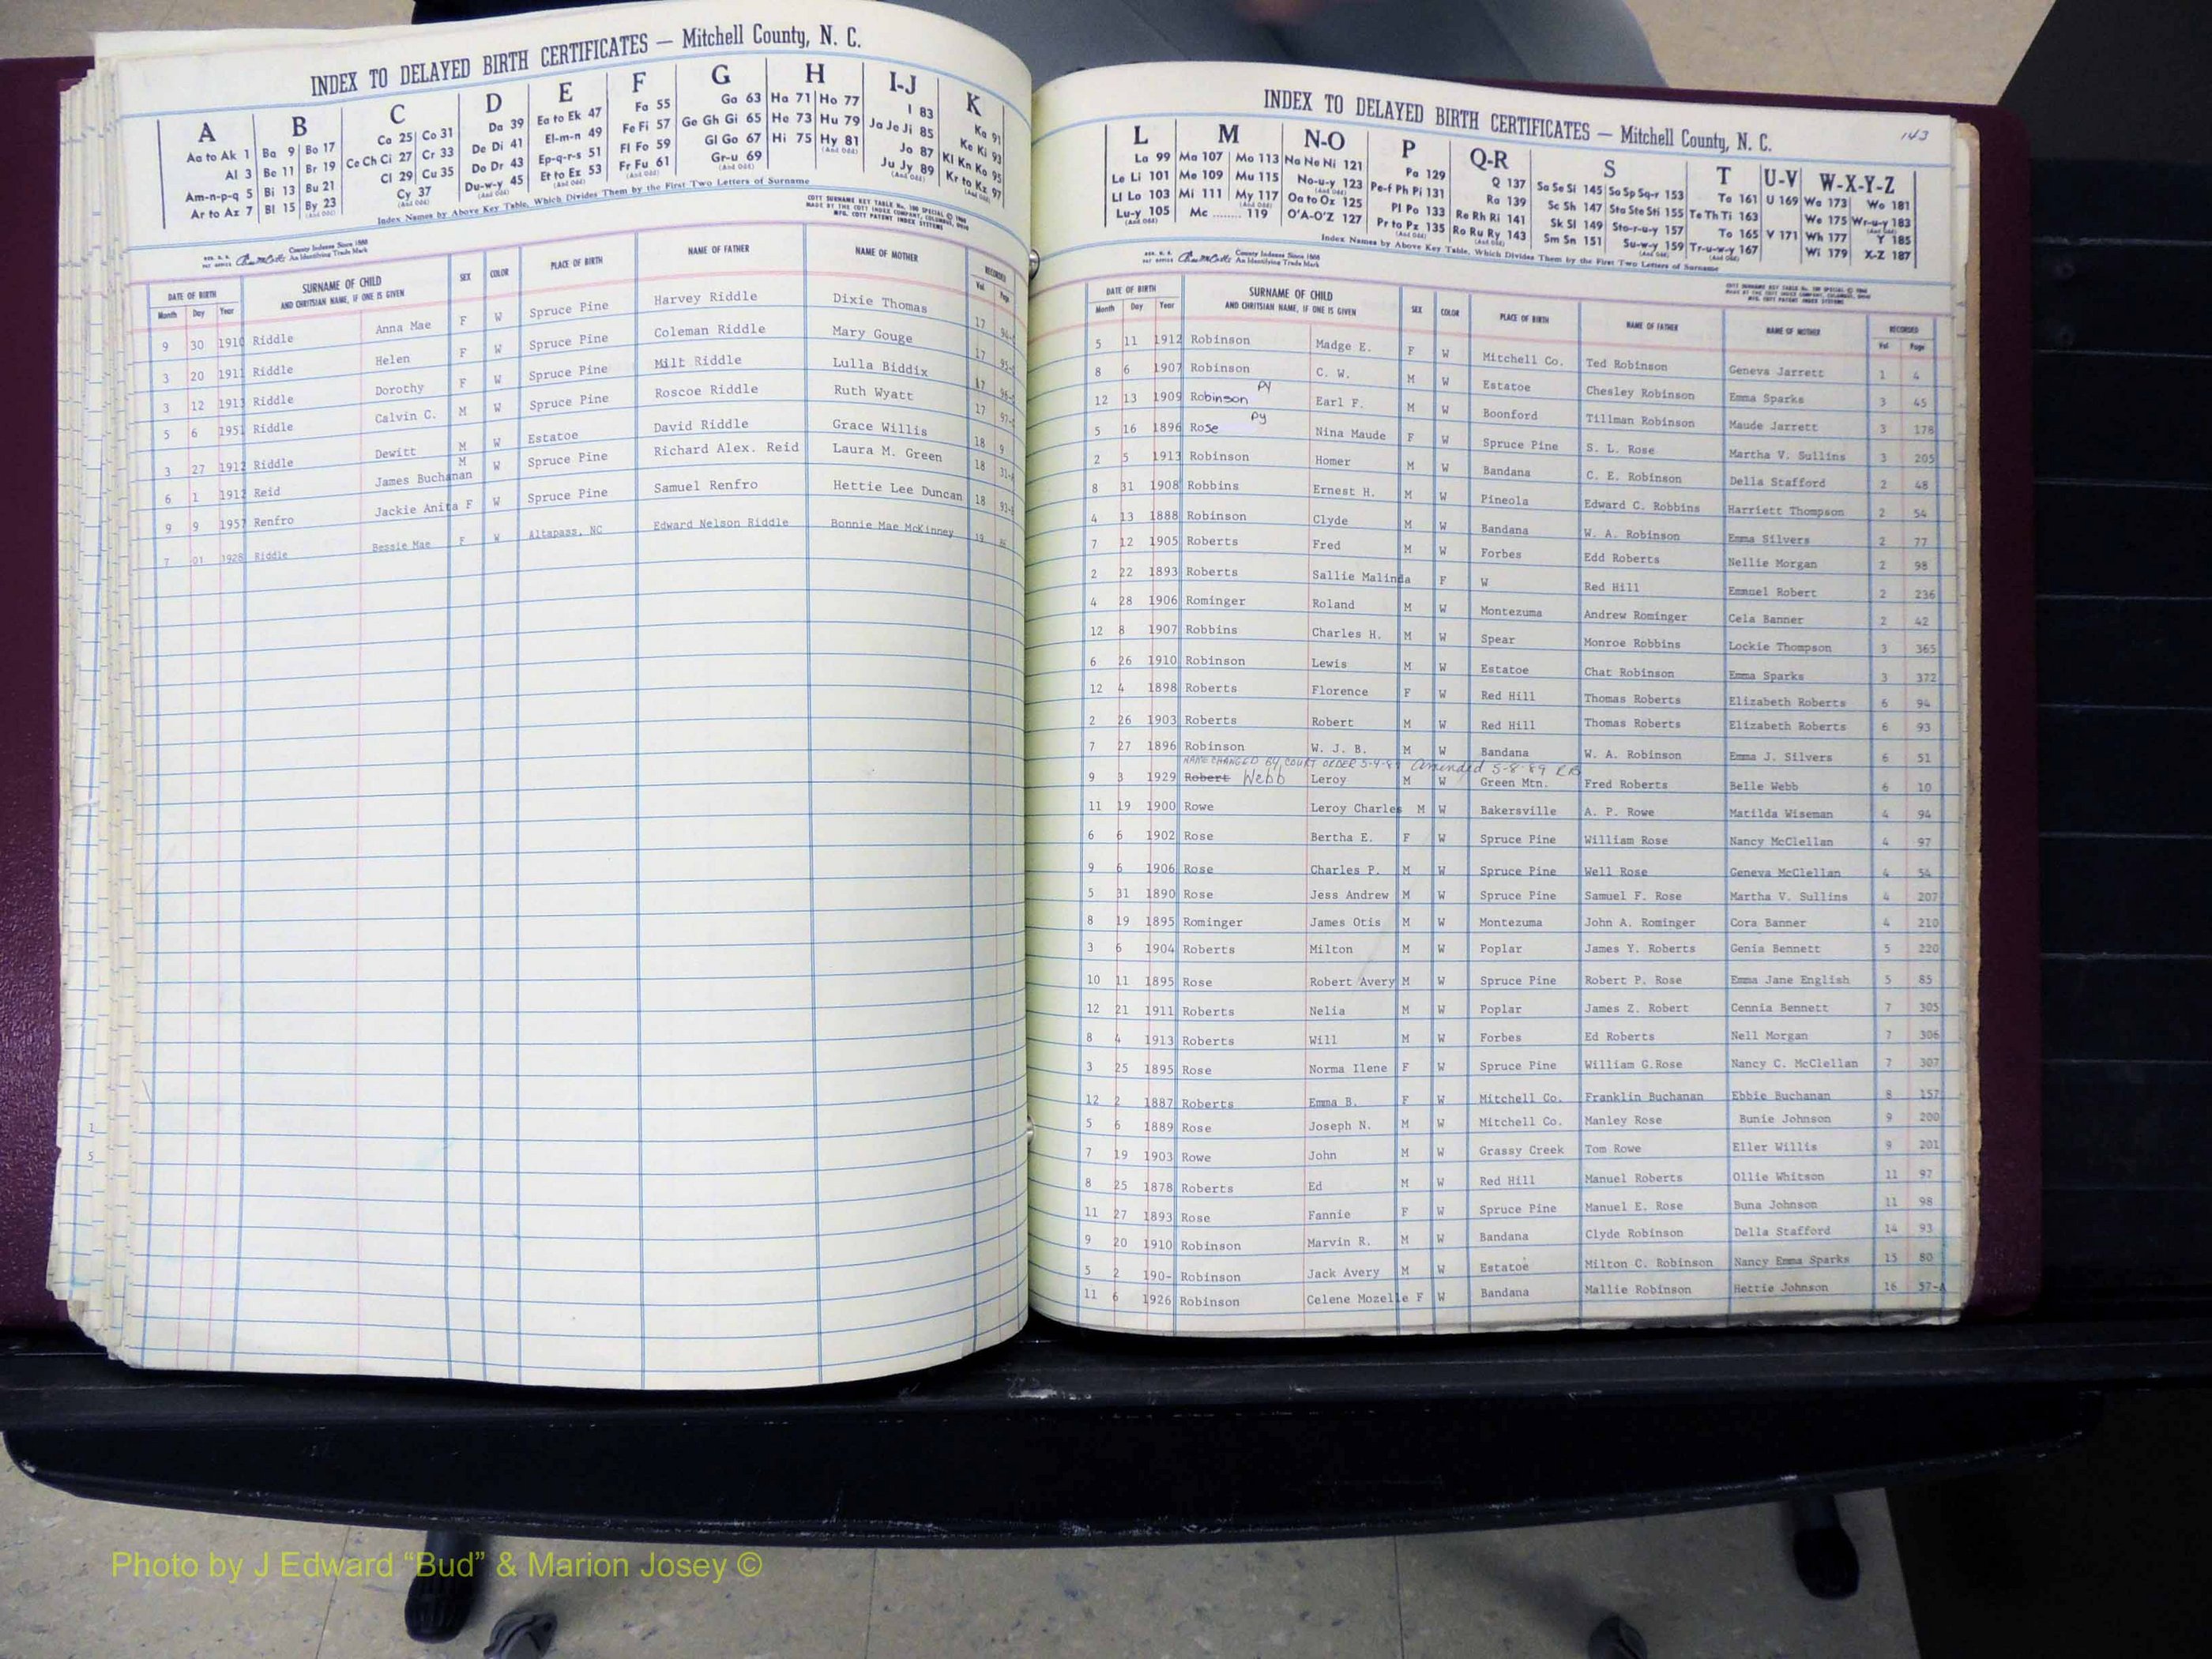 INDEX TO DELAYED BIRTH CERTIFICATES — Mitchell County, N. C.
A B C D E F G H I-J K
Aa to Ak 1 Ba 9 Bo 17 Ca 25 Co 31 Da 39 Ea to Ek 47 Fa 55 Ga 63 Ha 71 Ho 77 I 83 Ka 91
Al 3 Be 11 Br 19 Ce Ch Ci 27 Cr 33 De Di 41 El-m-n 49 Fe Fi 57 Ge Gh Gi 65 He 73 Hu 79 Ja Je Ji 85 Ke Ki 93
Am-n-p-q 5 Bi 13 Bu 21 Cl 29 Cu 35 Do Dr 43 Ep-q-r-s 51 Fl Fo 59 Gl Go 67 Hi 75 Hy 81 Jo 87 Kl Kn Ko 95
Ar to Az 7 Bl 15 By 23 Cy 37 Du-w-y 45 Et to Ez 53 Fr Fu 61 Gr-u 69 Ju Jy 89 Kr to Kz 97
Index Names by Above Key Table, Which Divides Them by the First Two Letters of Surname
COTT SURNAME KEY TABLE No. 100 SPECIAL © 1968
MADE BY THE COTT INDEX COMPANY, COLUMBUS, OHIO
MFG. COTT PATENT INDEX SYSTEMS
County Indexes Since 1888
An Identifying Trade Mark
DATE OF BIRTH SURNAME OF CHILD AND CHRITSIAN NAME, IF ONE IS GIVEN SEX COLOR PLACE OF BIRTH NAME OF FATHER NAME OF MOTHER RECORDED
Month Day Year Vol. Page
9 30 1910 Riddle Anna Mae F W Spruce Pine Harvey Riddle Dixie Thomas 17
3 20 1911 Riddle Helen F W Spruce Pine Coleman Riddle Mary Gouge 17
3 12 1913 Riddle Dorothy F W Spruce Pine Milt Riddle Lulla Biddix 17
5 6 1951 Riddle Calvin C. M W Spruce Pine Roscoe Riddle Ruth Wyatt 17
3 27 1912 Riddle Dewitt M W Estatoe David Riddle Grace Willis 18 9
6 1 1912 Reid James Buchanan M W Spruce Pine Richard Alex. Reid Laura M. Green 18
9 9 1957 Renfro Jackie Anita F W Spruce Pine Samuel Renfro Hettie Lee Duncan 18
7 01 1928 Riddle Bessie Mae F W Altapass, NC Edward Nelson Riddle Bonnie Mae McKinney 19
1
5
143
INDEX TO DELAYED BIRTH CERTIFICATES — Mitchell County, N. C.
L M N-O P Q-R S T U-V W-X-Y-Z
La 99 Ma 107 Mo 113 Na Ne Ni 121 Pa 129 Q 137 Sa Se Si 145 So Sp Sq-r 153 Ta 161 U 169 Wa 173 Wo 181
Le Li 101 Me 109 Mu 115 No-u-y 123 Pe-f Ph Pi 131 Ra 139 Sc Sh 147 Sta Ste Sti 155 Te Th Ti 163 We 175 Wr-u-y 183
Ll Lo 103 Mi 111 My 117 Oa to Oz 125 Pl Po 133 Re Rh Ri 141 Sk Sl 149 Sto-r-u-y 157 To 165 V 171 Wh 177 Y 185
Lu-y 105 Mc ........ 119 O'A-O'Z 127 Pr to Pz 135 Ro Ru Ry 143 Sm Sn 151 Su-w-y 159 Tr-u-w-y 167 Wi 179 X-Z 187
Index Names by Above Key Table, Which Divides Them by the First Two Letters of Surname
County Indexes Since 1888
An Identifying Trade Mark
DATE OF BIRTH SURNAME OF CHILD AND CHRITSIAN NAME, IF ONE IS GIVEN SEX COLOR PLACE OF BIRTH NAME OF FATHER NAME OF MOTHER RECORDED
Month Day Year Vol. Page
5 11 1912 Robinson Madge E. F W Mitchell Co. Ted Robinson Geneva Jarrett 1 4
8 6 1907 Robinson C. W. M W Estatoe Chesley Robinson Emma Sparks 3 45
12 13 1909 Robinson py Earl F. M W Boonford Tillman Robinson Maude Jarrett 3 178
5 16 1896 Rose py Nina Maude F W Spruce Pine S. L. Rose Martha V. Sullins 3 205
2 5 1913 Robinson Homer M W Bandana C. E. Robinson Della Stafford 2 48
8 31 1908 Robbins Ernest H. M W Pineola Edward C. Robbins Harriett Thompson 2 54
4 13 1888 Robinson Clyde M W Bandana W. A. Robinson Emma Silvers 2 77
7 12 1905 Roberts Fred M W Forbes Edd Roberts Nellie Morgan 2 98
2 22 1893 Roberts Sallie Malinda F W Red Hill Emmuel Robert 2 236
4 28 1906 Rominger Roland M W Montezuma Andrew Rominger Cela Banner 2 42
12 8 1907 Robbins Charles H. M W Spear Monroe Robbins Lockie Thompson 3 365
6 26 1910 Robinson Lewis M W Estatoe Chat Robinson Emma Sparks 3 372
12 4 1898 Roberts Florence F W Red Hill Thomas Roberts Elizabeth Roberts 6 94
2 26 1903 Roberts Robert M W Red Hill Thomas Roberts Elizabeth Roberts 6 93
7 27 1896 Robinson W. J. B. M W Bandana W. A. Robinson Emma J. Silvers 6 51
NAME CHANGED BY COURT ORDER 5-4-89 Amended 5-8-89 RB
9 3 1929 Robert Webb Leroy M W Green Mtn. Fred Roberts Belle Webb 6 10
11 19 1900 Rowe Leroy Charles M W Bakersville A. P. Rowe Matilda Wiseman 4 94
6 6 1902 Rose Bertha E. F W Spruce Pine William Rose Nancy McClellan 4 97
9 6 1906 Rose Charles P. M W Spruce Pine Well Rose Geneva McClellan 4 54
5 31 1890 Rose Jess Andrew M W Spruce Pine Samuel F. Rose Martha V. Sullins 4 207
8 19 1895 Rominger James Otis M W Montezuma John A. Rominger Cora Banner 4 210
3 6 1904 Roberts Milton M W Poplar James Y. Roberts Genia Bennett 5 220
10 11 1895 Rose Robert Avery M W Spruce Pine Robert P. Rose Emma Jane English 5 85
12 21 1911 Roberts Nelia M W Poplar James Z. Robert Cennia Bennett 7 305
8 4 1913 Roberts Will M W Forbes Ed Roberts Nell Morgan 7 306
3 25 1895 Rose Norma Ilene F W Spruce Pine William G.Rose Nancy C. McClellan 7 307
12 2 1887 Roberts Emma B. F W Mitchell Co. Franklin Buchanan Ebbie Buchanan 8 157
5 6 1889 Rose Joseph N. M W Mitchell Co. Manley Rose Bunie Johnson 9 200
7 19 1903 Rowe John M W Grassy Creek Tom Rowe Eller Willis 9 201
8 25 1878 Roberts Ed M W Red Hill Manuel Roberts Ollie Whitson 11 97
11 27 1893 Rose Fannie F W Spruce Pine Manuel E. Rose Buna Johnson 11 98
9 20 1910 Robinson Marvin R. M W Bandana Clyde Robinson Della Stafford 14 93
5 2 190- Robinson Jack Avery M W Estatoe Milton C. Robinson Nancy Emma Sparks 15 80
11 6 1926 Robinson Celene Mozelle F W Bandana Mallie Robinson Hettie Johnson 16 57-A
Photo by J Edward “Bud” & Marion Josey ©